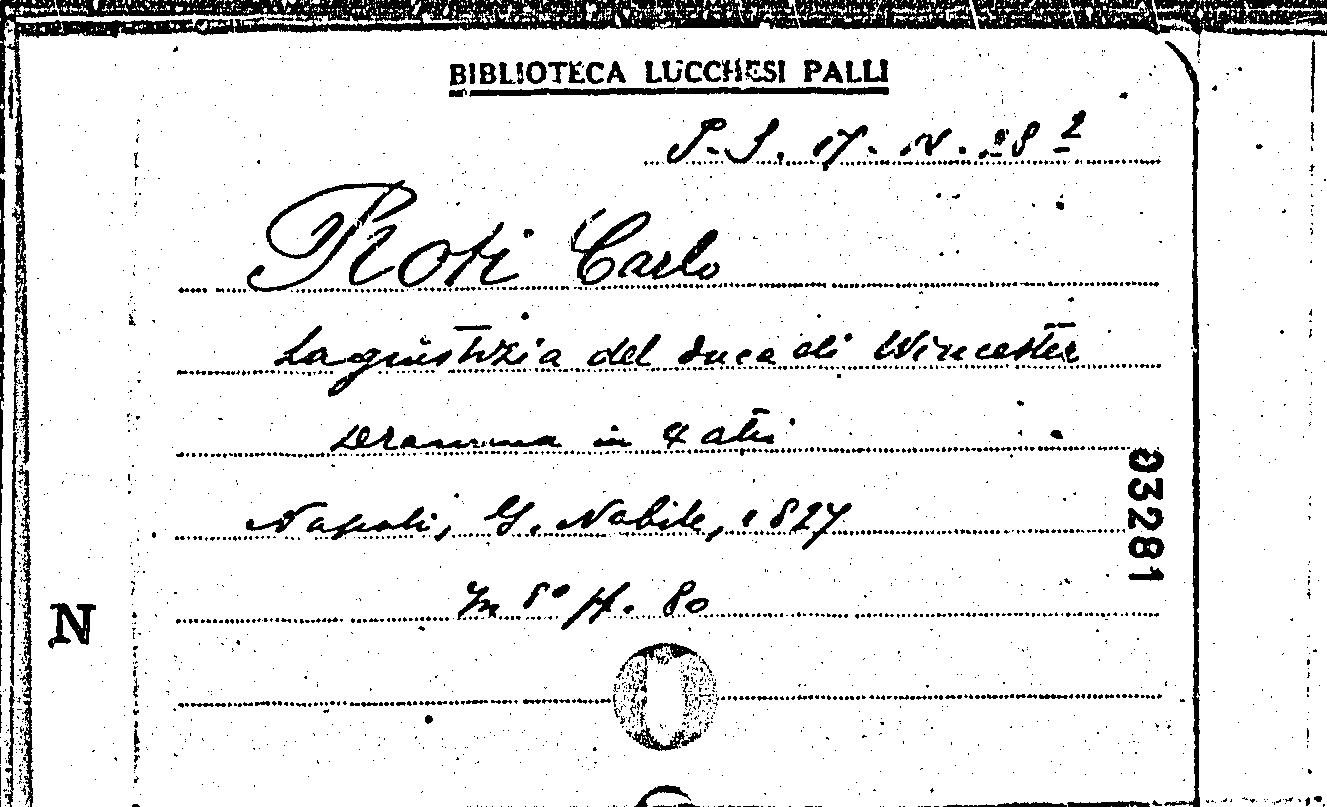 BIBLIOTECA LUCCHESI PALLI
P. S. 17. IV. 28 2
Roti Carlo
La giustizia del duca di Wincester
Dramma in 4 atti
Napoli, G. Nobile, 1827
In 8° pp. 80
03281
N